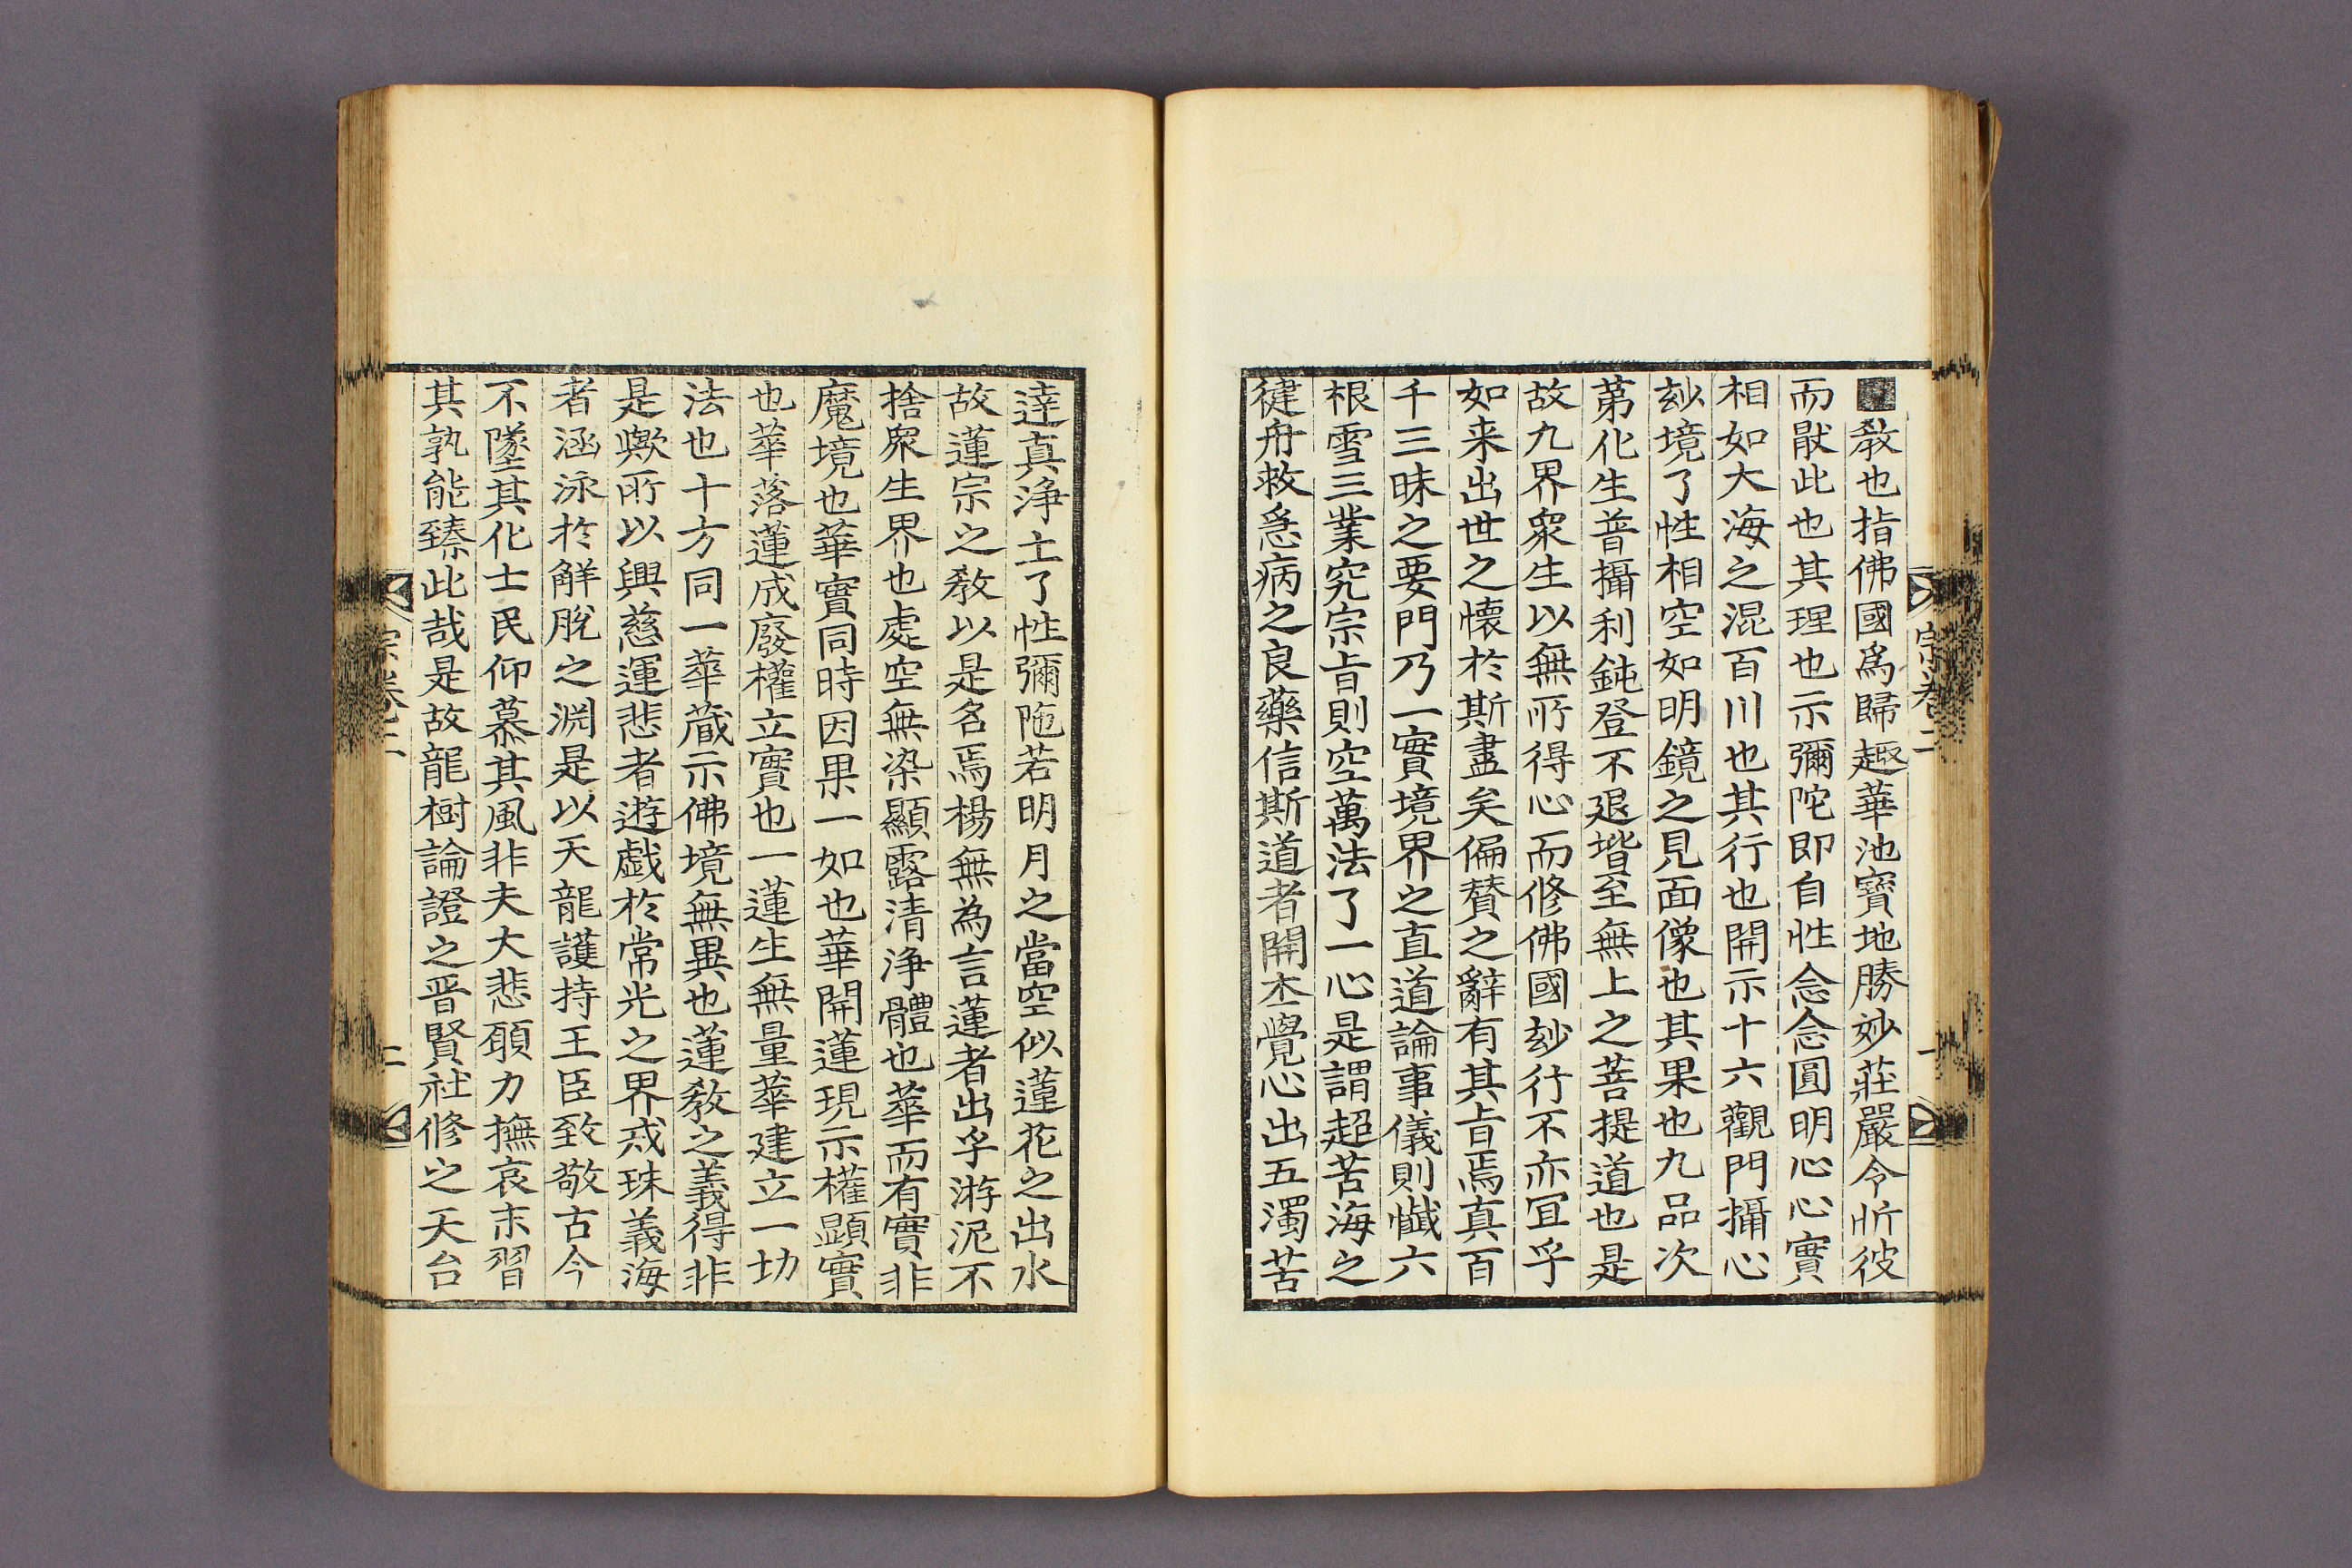 教也指佛國爲歸趣華池寶地勝妙莊嚴令忻彼
而猒此也其理也示彌陀即自性念念圓明心心實
相如大海之混百川也其行也開示十六觀門攝心
玅境了性相空如明鏡之見面像也其果也九品次
第化生普攝利鈍登不退堦至無上之菩提道也是
故九界衆生以無所得心而修佛國玅行不亦冝乎
如来出世之懷於斯盡矣偏賛之辭有其㫖焉真百
千三昧之要門乃一實境界之直道論事儀則懺六
根雪三業究宗㫖則空萬法了一心是謂超苦海之
徤舟救急病之良藥信斯道者開夲覺心出五濁苦
宗卷二
一
達真浄土了性彌陁若明月之當空似蓮花之出水
故蓮宗之教以是名焉楊無為言蓮者出乎淤泥不
捨衆生界也處空無染顯露清浄體也華而有實非
魔境也華實同時因果一如也華開蓮現示權顕實
也華落蓮成廢權立實也一蓮生無量華建立一切
法也十方同一華蔵示佛境無異也蓮教之義得非
是歟所以興慈運悲者遊戯於常光之界戒珠義海
者涵泳於解脫之淵是以天龍護持王臣致敬古今
不墜其化士民仰慕其風非夫大悲願力撫哀末習
其孰能臻此哉是故龍樹論證之晋賢社修之天台
宗卷二
二